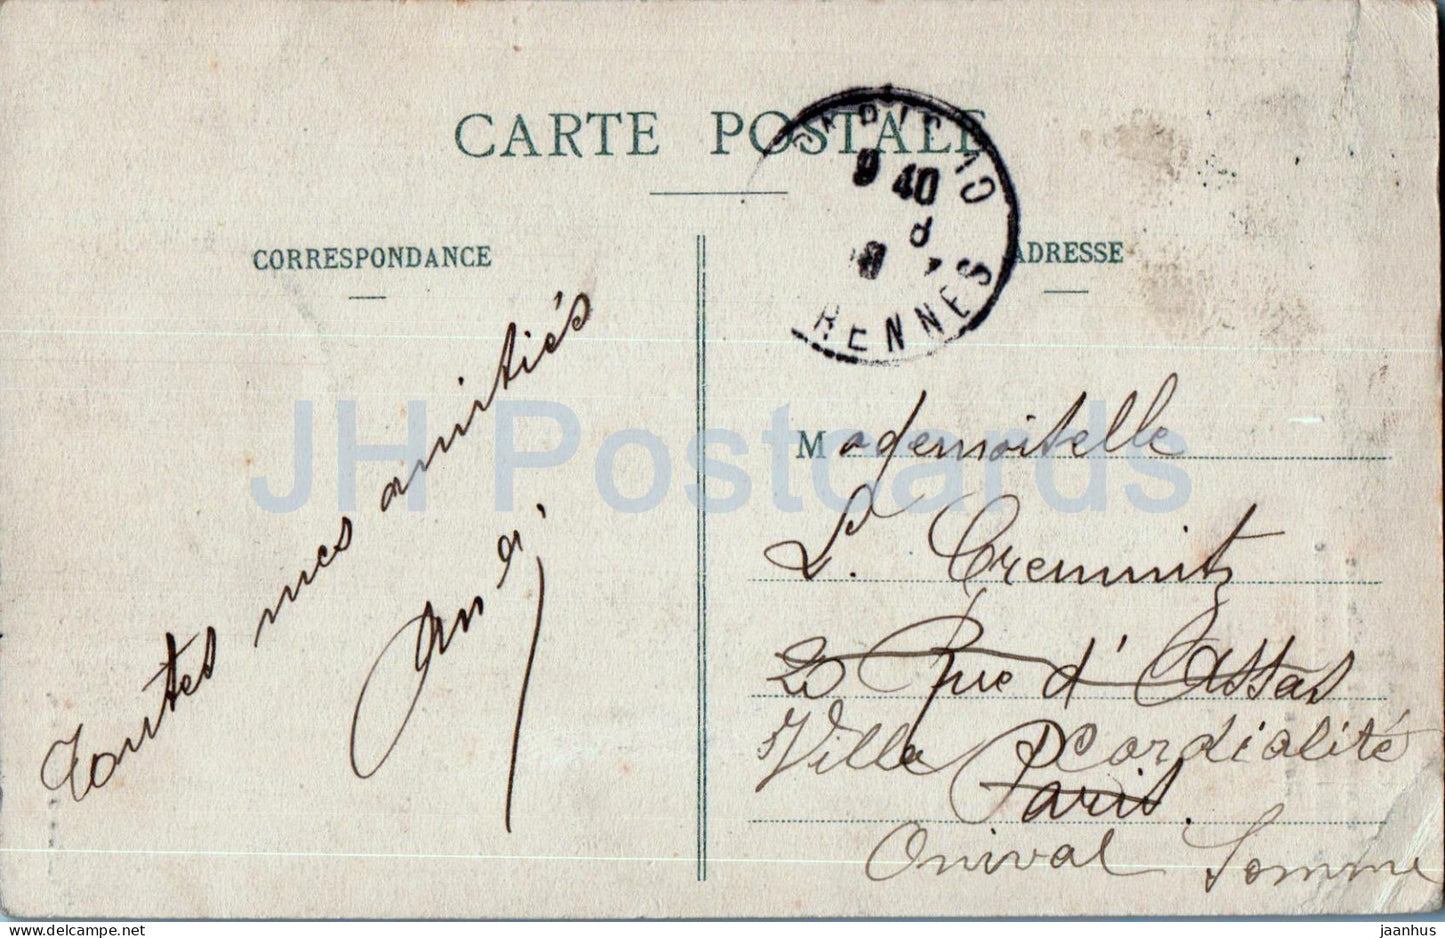 CARTE POSTALE
9 40
8
RENNES
CORRESPONDANCE
ADRESSE
Toutes mes amitiés
Mademoiselle
L. Cremnitz
20 Rue d'Assas
Villa Cordialité
Paris.
Onival Somme
JH Postcards
delcampe.net
jaanhus